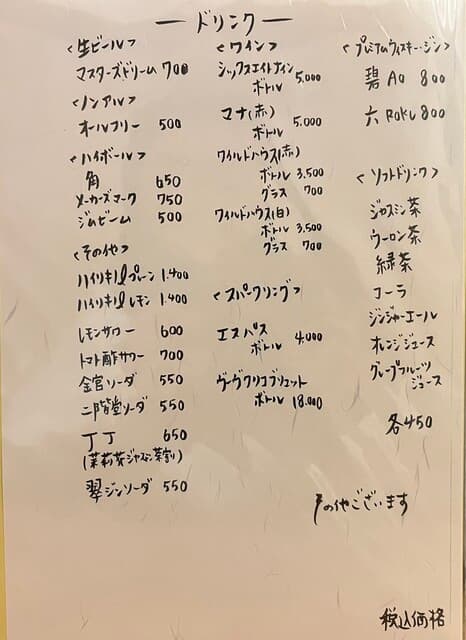 ー ドリンク ー
<生ビール>
マスターズドリーム 700
<ノンアル>
オールフリー 500
<ハイボール>
角 650
メーカーズマーク 750
ジムビーム 500
<その他>
ハイリキ1ℓプレーン 1.400
ハイリキ1ℓレモン 1.400
レモンサワー 600
トマト酢サワー 700
金宮ソーダ 550
二階堂ソーダ 550
丁丁 650
(茉莉花ジャスミン茶割り)
翠ジンソーダ 550
<ワイン>
シックスエイトナイン
ボトル 5,000
マナ(赤)
ボトル 5.000
ワイルドハウス(赤)
ボトル 3,500
グラス 700
ワイルドハウス(白)
ボトル 3,500
グラス 700
<スパークリング>
エスパス
ボトル 4,000
ヴーヴクリコブリュット
ボトル 18.000
<プレミアムウィスキー・ジン>
碧 AO 800
六 ROKU 800
<ソフトドリンク>
ジャスミン茶
ウーロン茶
緑茶
コーラ
ジンジャーエール
オレンジジュース
グレープフルーツ
ジュース
各450
その他ございます
税込価格